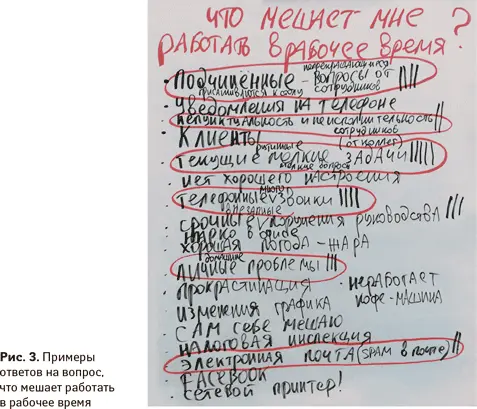 ЧТО МЕШАЕТ МНЕ
РАБОТАТЬ В РАБОЧЕЕ ВРЕМЯ?
непрекращающиеся!
• ПОДЧИНЁННЫЕ – ВОПРОСЫ ОТ СОТРУДНИКОВ
• УВЕДОМЛЕНИЯ НА ТЕЛЕФОНЕ
НЕПУНКТУАЛЬНОСТЬ И НЕИСПОЛНИТЕЛЬНОСТЬ
СОТРУДНИКОВ
• КЛИЕНТЫ
(ОТ КОЛЛЕГ)
• ТЕКУЩИЕ МЕЛКИЕ ЗАДАЧИ
• НЕТ ХОРОШЕГО НАСТРОЕНИЯ
МНОГО
• ТЕЛЕФОННЫЕ ЗВОНКИ
ВНЕЗАПНЫЕ
• СРОЧНЫЕ ПОРУЧЕНИЯ РУКОВОДСТВА
• ЖАРКО В ОФИСЕ
• ХОРОШАЯ ПОГОДА – ЖАРА
домашние
• ЛИЧНЫЕ ПРОБЛЕМЫ
• ПРОКРАСТИНАЦИЯ
• НЕ РАБОТАЕТ
КОФЕ-МАШИНА
• ИЗМЕНЕНИЯ ГРАФИКА
• САМ СЕБЕ МЕШАЮ
• НАЛОГОВАЯ ИНСПЕКЦИЯ
• ЭЛЕКТРОННАЯ ПОЧТА (SPAM В ПОЧТЕ)
• FACEBOOK
• СЕТЕВОЙ ПРИНТЕР!
Рис. 3. Примеры
ответов на вопрос,
что мешает работать
в рабочее время